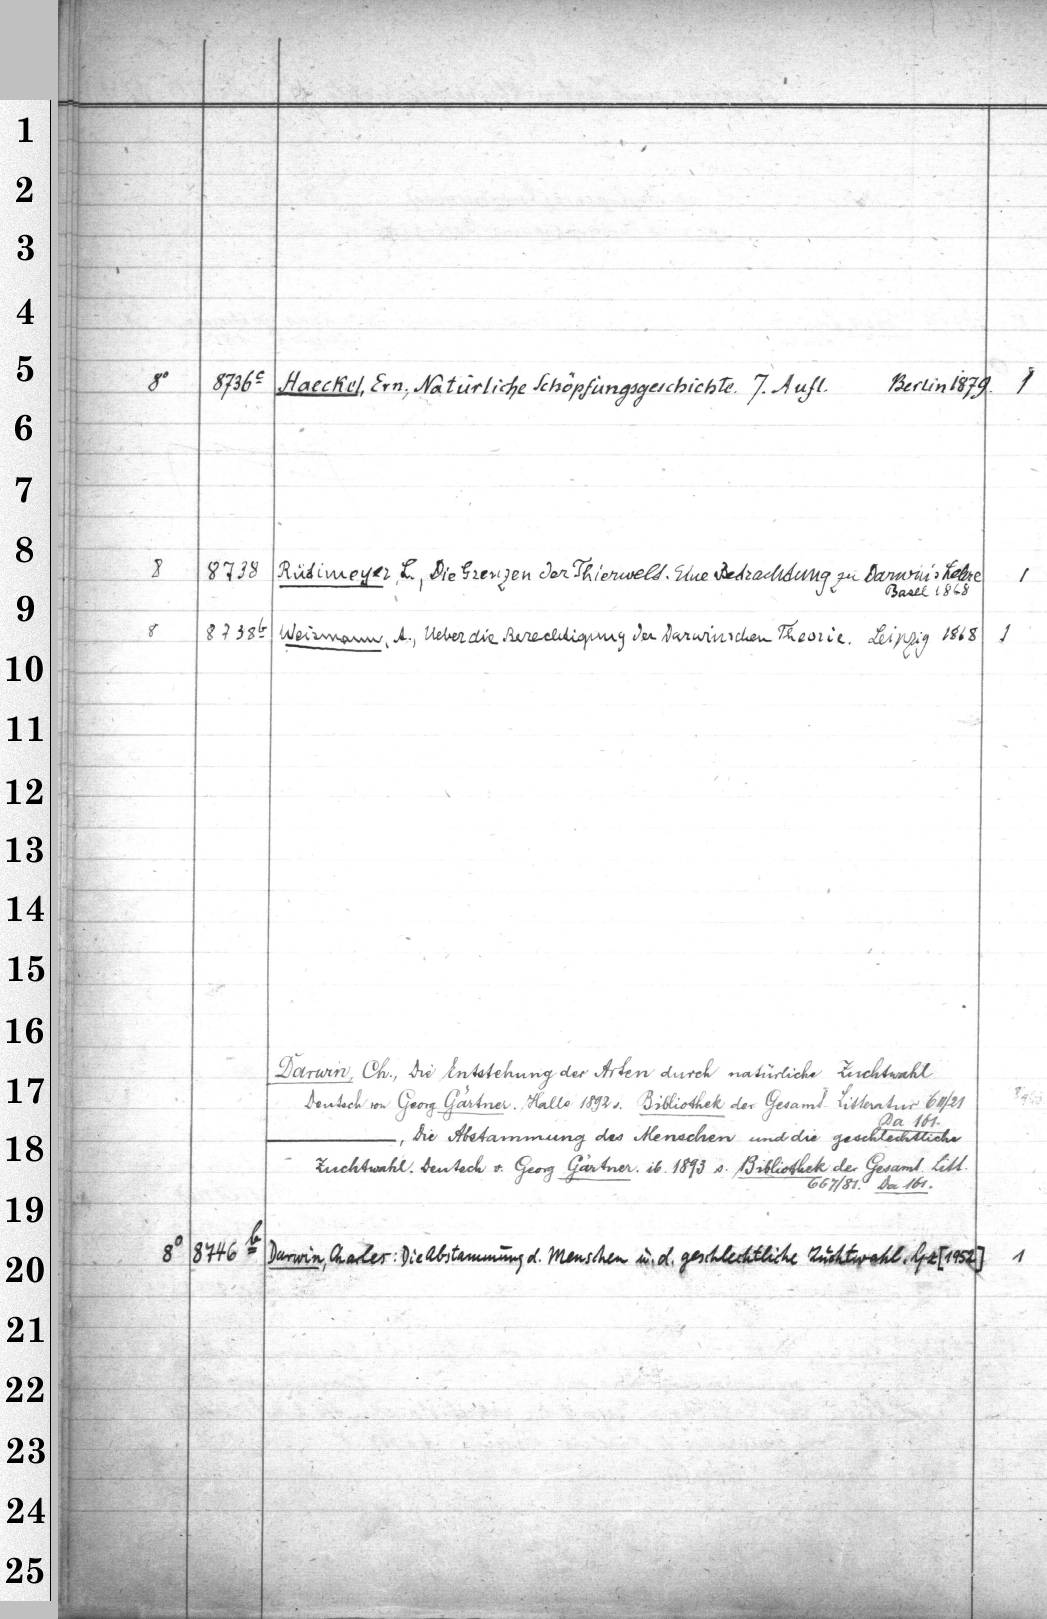 1
2
3
4
5
8° 8736c Haeckel, Ern., Natürliche Schöpfungsgeschichte. 7. Aufl. Berlin 1879. 1
6
7
8
8 8738 Rütimeyer, L., Die Grenzen der Thierwelt. Eine Betrachtung zu Darwin's Lehre 1
Basel 1868
9
8 8738b Weismann, A., Ueber die Berechtigung der Darwinschen Theorie. Leipzig 1868 1
10
11
12
13
14
15
16
Darwin, Ch., Die Entstehung der Arten durch natürliche Zuchtwahl
17
Deutsch von Georg Gärtner. Halle 1892 s. Bibliothek der Gesamt Litteratur 611/21
Da 161.
18
, Die Abstammung des Menschen und die geschlechtliche
Zuchtwahl. Deutsch v. Georg Gärtner. ib. 1893 s. Bibliothek der Gesamt Litt.
667/81. Da 161.
19
8° 8746b Darwin, Charles: Die Abstammung d. Menschen u. d. geschlechtliche Zuchtwahl. Lpz [1952] 1
20
21
22
23
24
25